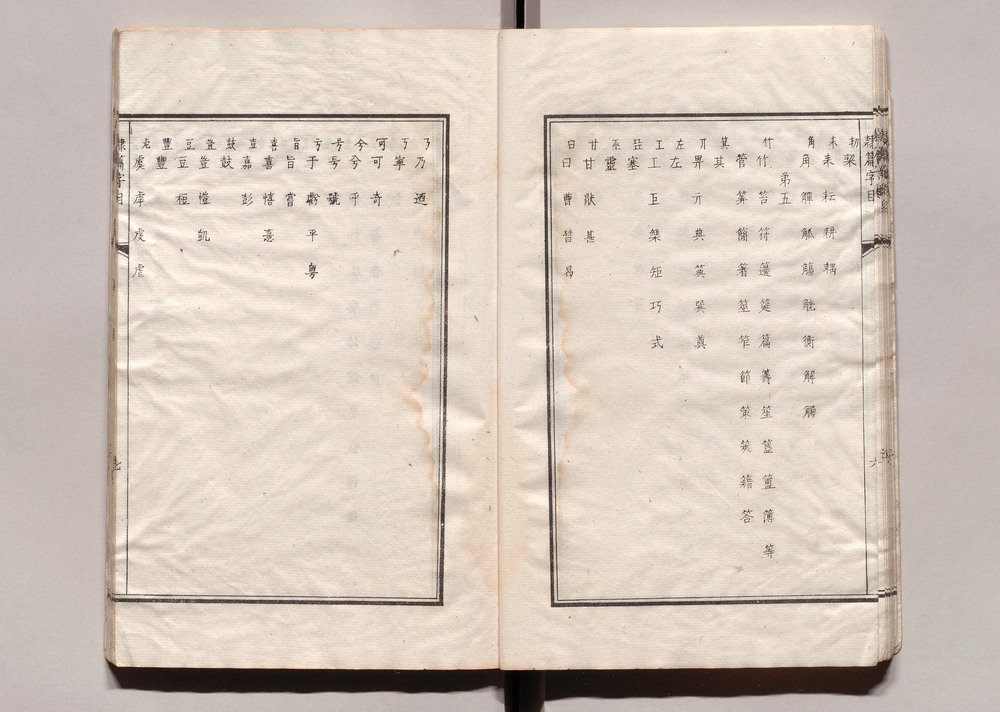 隸篇字目
㓞 栔
耒 耒 耘 耕 耦
角 角 觟 觚 觴 觥 衡 解 觸
第五
竹 竹 笞 符 籩 筵 篇 籌 笙 簋 簠 簿 等
管 筭 簡 箸 筮 笮 節 策 筴 籍 答
箕 其
丌 畀 亓 典 巽 奠
左 左
工 工 巨 榘 矩 巧 式
㠭 塞
巫 靈
甘 甘 猒 甚
曰 曰 曹 朁 曷
乃 乃 迺
丂 寧
可 可 奇
兮 兮 乎
号 号 號
亏 于 虧 平 粤
旨 旨 嘗
喜 喜 憙
壴 嘉 彭
鼓 鼓
豈 豈 愷 凱
豆 豆 桓
豐 豐
虍 虞 虖 虔 虐
隸篇字目